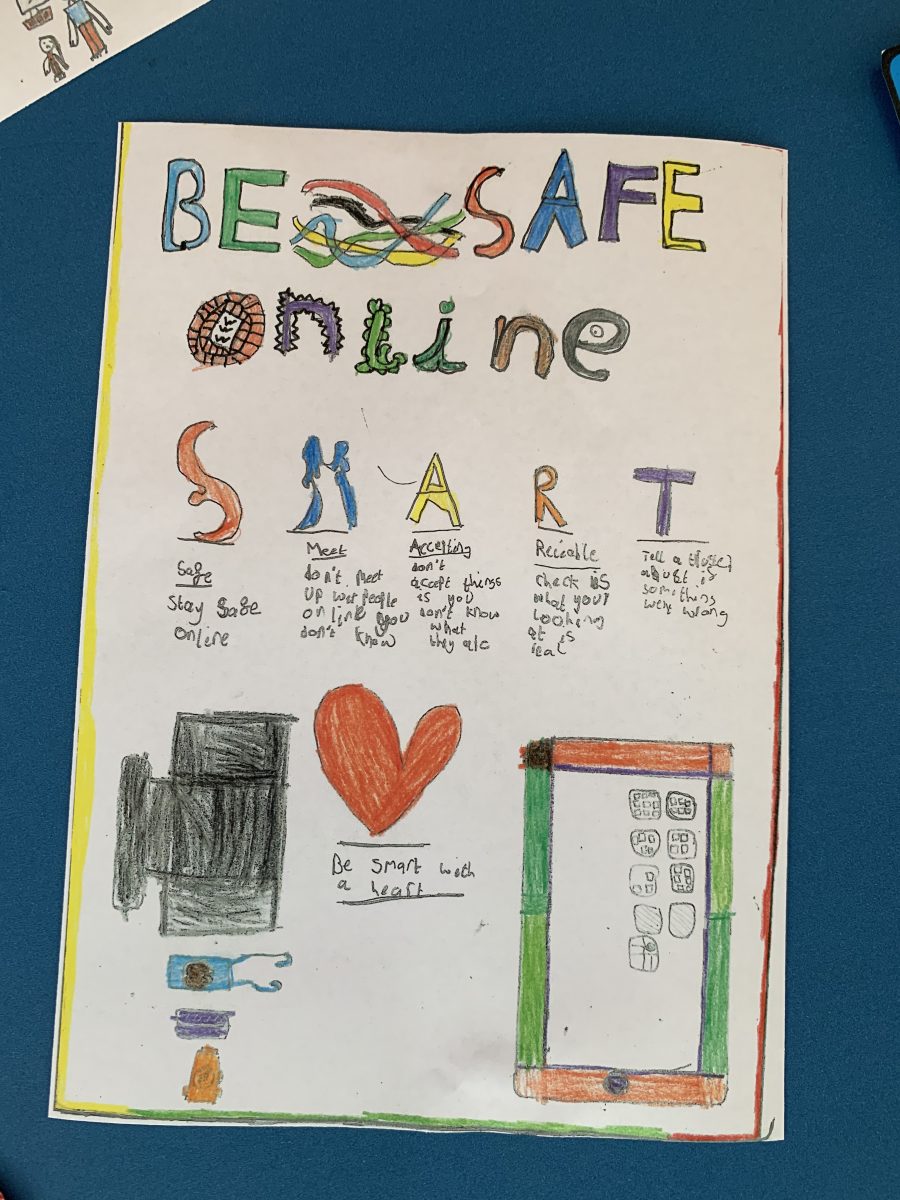 BE SAFE
OnLine
S M A R T
Safe
Stay Safe
online
Meet
don't meet
up wer people
online you
don't know
Accepting
don't
accept things
if you
don't know
what
they are
Reliable
Check is
what your
looking
at is
real
Tell a trusted
adult if
somethings
went wrong
Be smart with
a heart